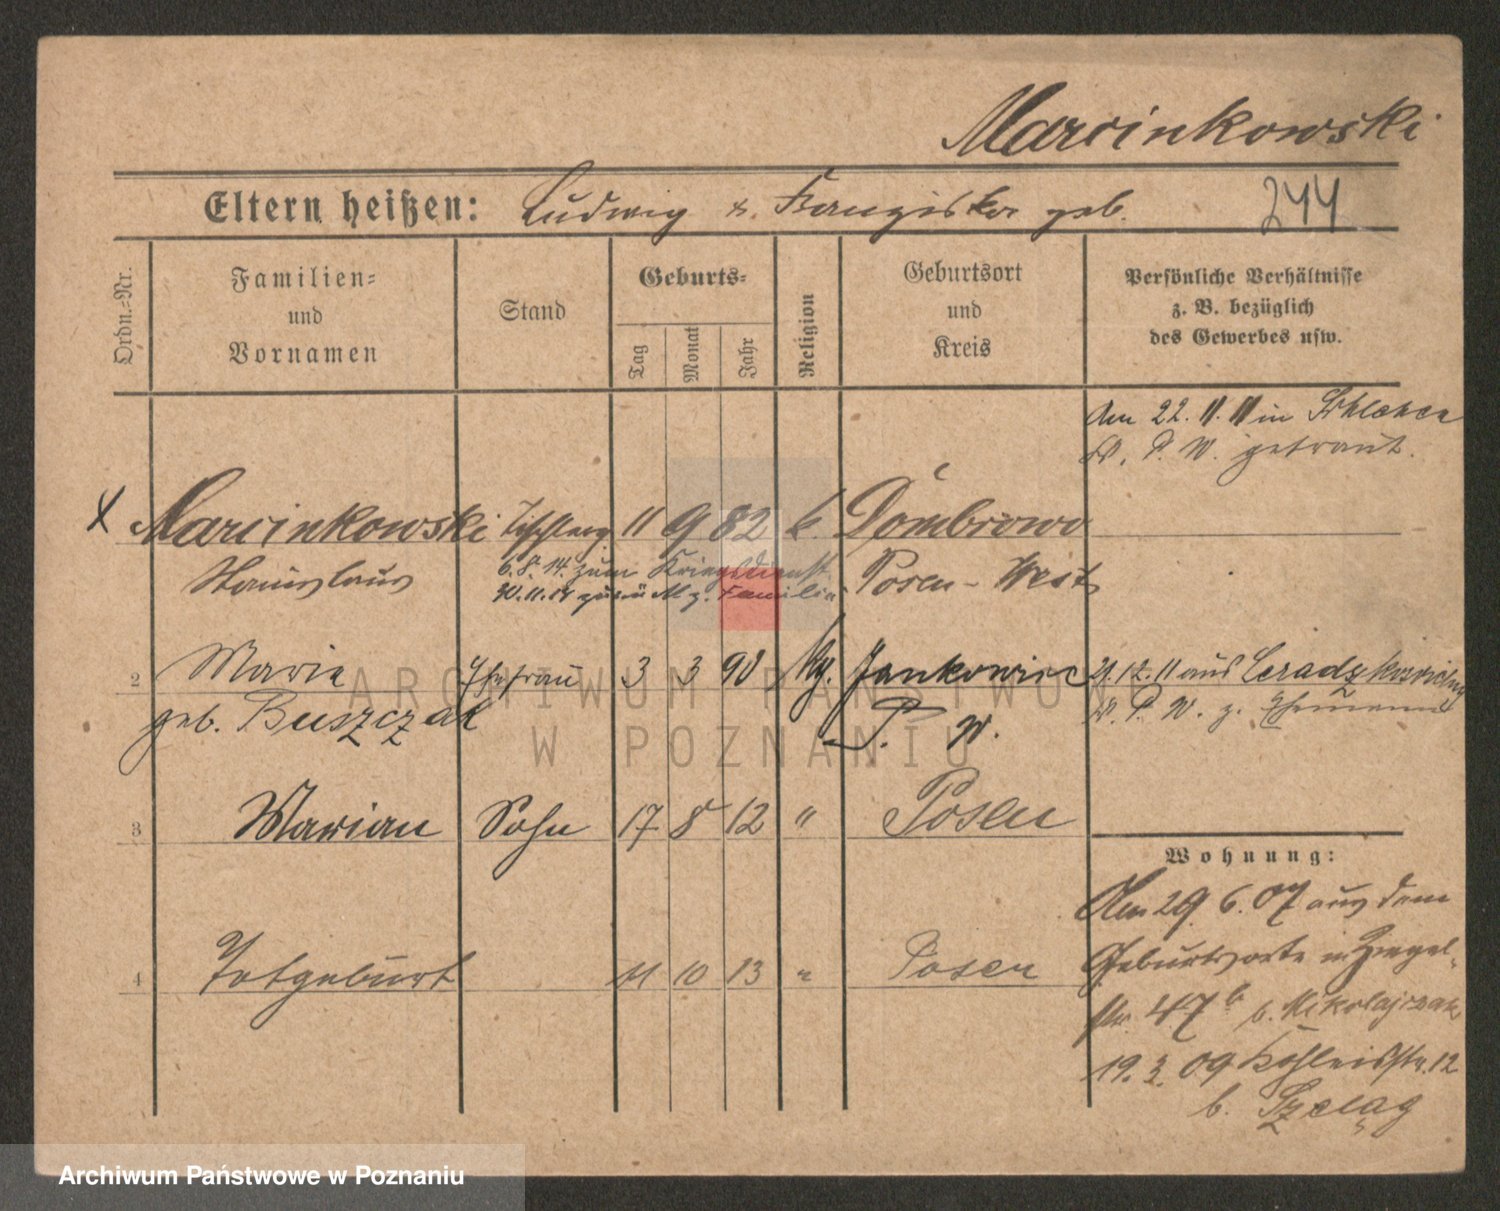 Marcinkowski
Eltern heißen: Ludwig u. Franziska geb.
244
Ordn.=Nr.
Familien=
und
Vornamen
Stand
Geburts=
Tag
Monat
Jahr
Religion
Geburtsort
und
Kreis
Persönliche Verhältnisse
z. B. bezüglich
des Gewerbes usw.
Am 22. 11. 11 in
Kr. P. W. getraut.
X Marcinkowski Tischlerg 11 9 82 k. Dombrowo
Stanislaus
6. 8. 14. zum Kriegsdienst
Posen-West
2 Marie Ehefrau 3 3 90 kg. Jankowice
geb. Buszczak P. W.
21. 12. 11 aus
Kr. P. W. z. Ehemann
3 Marian Sohn 17 8 12 " Posen
4 Totgeburt 11 10 13 " Posen
Wohnung:
Am 29. 6. 07 aus dem
Geburtsorte in Ziegel-
str. 47b b. Mikolajczak
19. 3. 09 Kohleisstr. 12
b. Szeląg
ARCHIWUM PAŃSTWOWE
W POZNANIU
Archiwum Państwowe w Poznaniu